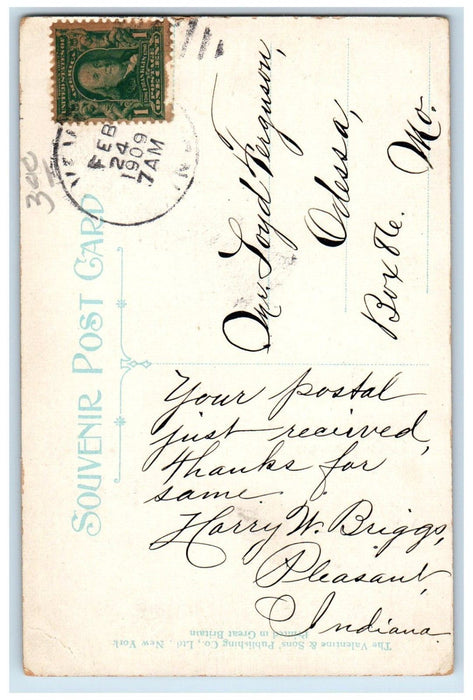 SOUVENIR POST CARD
FEB
24
1909
7 AM
1
1
300
Mr. Loyd Ferguson,
Odessa,
Box 86. Mo.
Your postal
just recieved,
thanks for
same.
Harry W. Briggs,
Pleasant,
Indiana.
The Valentine & Sons' Publishing Co., Ltd., New York
Printed in Great Britain